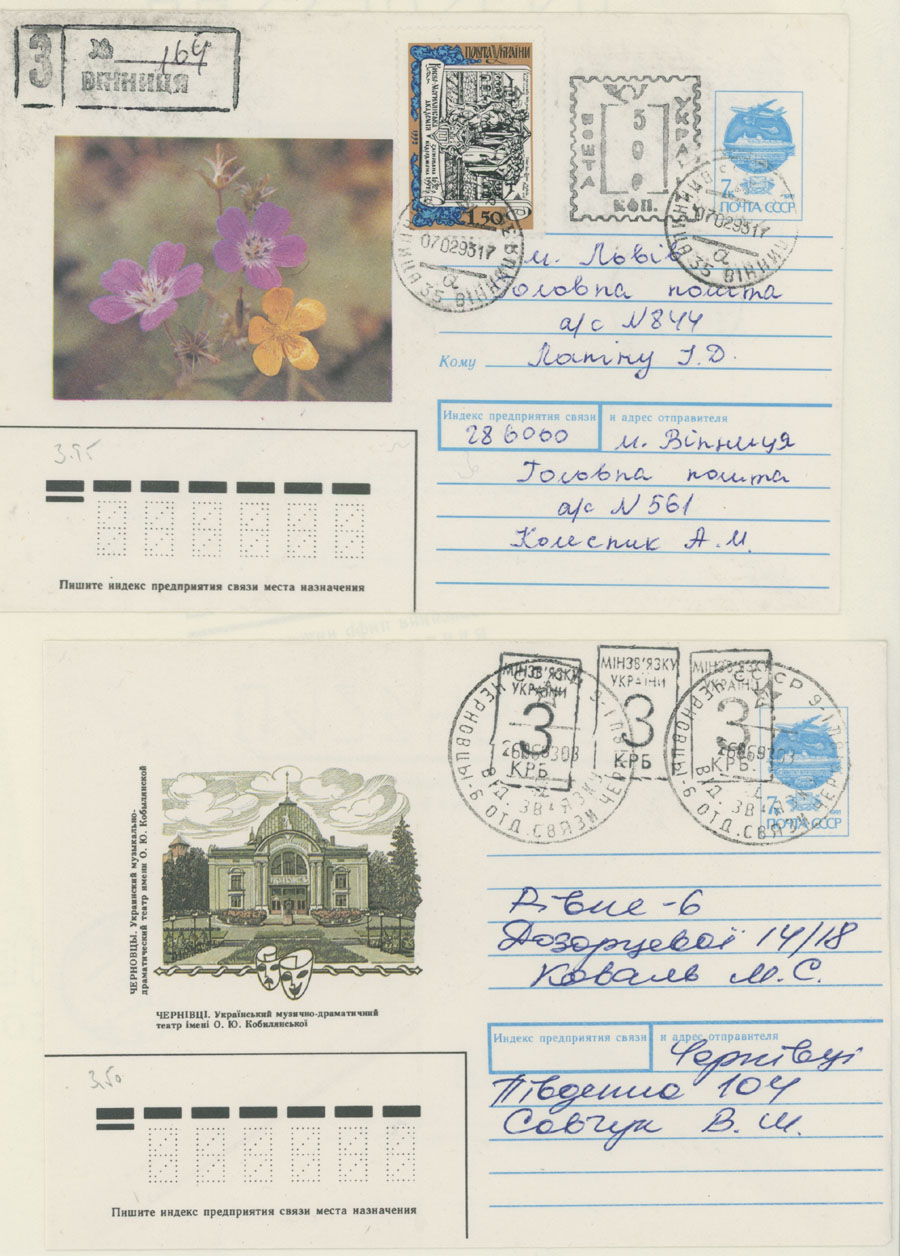 З № 164
ВІННИЦЯ
ПОШТА УКРАЇНИ
1992
1.50
ПОШТА УКРА
500
КОП.
7к
ПОЧТА СССР
ВІННИЦЯ 35
07029317
а
ВІННИЦЯ 35
07029317
а
м. Львів
Головна пошта
а/с N 844
Кому Лапіну Г.Д.
Индекс предприятия связи и адрес отправителя
286000 м. Вінниця
Головна пошта
а/с N 561
Колесник А.М.
3.95
Пишите индекс предприятия связи места назначения
МІНЗВ'ЯЗКУ УКРАЇНИ
3
КРБ
МІНЗВ'ЯЗКУ УКРАЇНИ
3
КРБ
МІНЗВ'ЯЗКУ УКРАЇНИ
3
КРБ.
СССР
ЧЕРНОВЦЫ-6 ОТД. СВЯЗИ
ВІД. ЗВ'ЯЗКУ
7к
ПОЧТА СССР
Рівне-6
Дозорцевої 14/18
Коваль М.С.
ЧЕРНОВЦЫ. Украинский музыкально-
драматический театр имени О. Ю. Кобылянской
ЧЕРНІВЦІ. Український музично-драматичний
театр імені О. Ю. Кобилянської
Индекс предприятия связи и адрес отправителя
Чернівці
Південна 104
Савчук В.М.
3,50
Пишите индекс предприятия связи места назначения